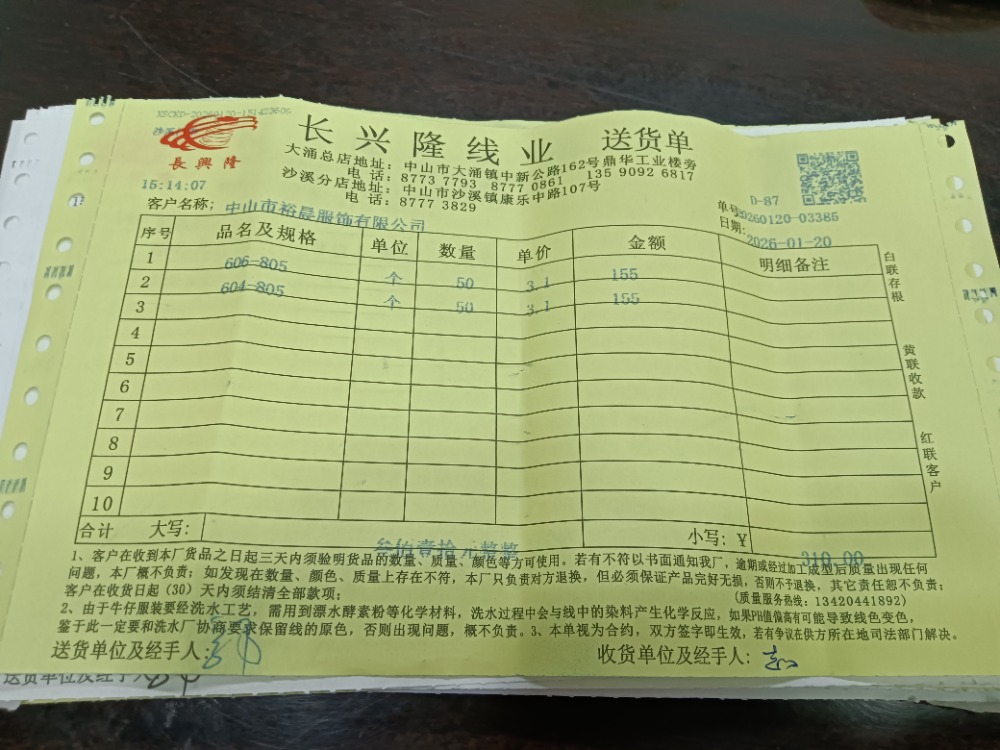 XSCKD-20260120-151423600
長興隆
长兴隆线业 送货单
大涌总店地址：中山市大涌镇中新公路162号鼎华工业楼旁
电 话：8773 7793 8777 0861 135 9092 6817
沙溪分店地址：中山市沙溪镇康乐中路107号
电 话：8777 3829
15:14:07
D-87
单号:20260120-03385
客户名称：中山市裕晨服饰有限公司
日期:2026-01-20
序号 品名及规格 单位 数量 单价 金额 明细备注
1 606-805 个 50 3.1 155
2 604-805 个 50 3.1 155
3
4
5
6
7
8
9
10
合计 大写: 叁佰壹拾元整整 小写:￥ 310.00
白联存根
黄联收款
红联客户
1、客户在收到本厂货品之日起三天内须验明货品的数量、质量、颜色等方可使用。若有不符以书面通知我厂，逾期或经过加工成型后质量出现任何
问题，本厂概不负责；如发现在数量、颜色、质量上存在不符，本厂只负责对方退换，但必须保证产品完好无损，否则不予退换，其它责任恕不负责；
客户在收货日起（30）天内须结清全部款项； （质量服务热线：13420441892）
2、由于牛仔服装要经洗水工艺，需用到漂水酵素粉等化学材料，洗水过程中会与线中的染料产生化学反应，如果PH值偏高有可能导致线色变色，
鉴于此一定要和洗水厂协商要求保留线的原色，否则出现问题，概不负责。3、本单视为合约，双方签字即生效，若有争议在供方所在地司法部门解决。
送货单位及经手人: 收货单位及经手人:
送货单位及经手人